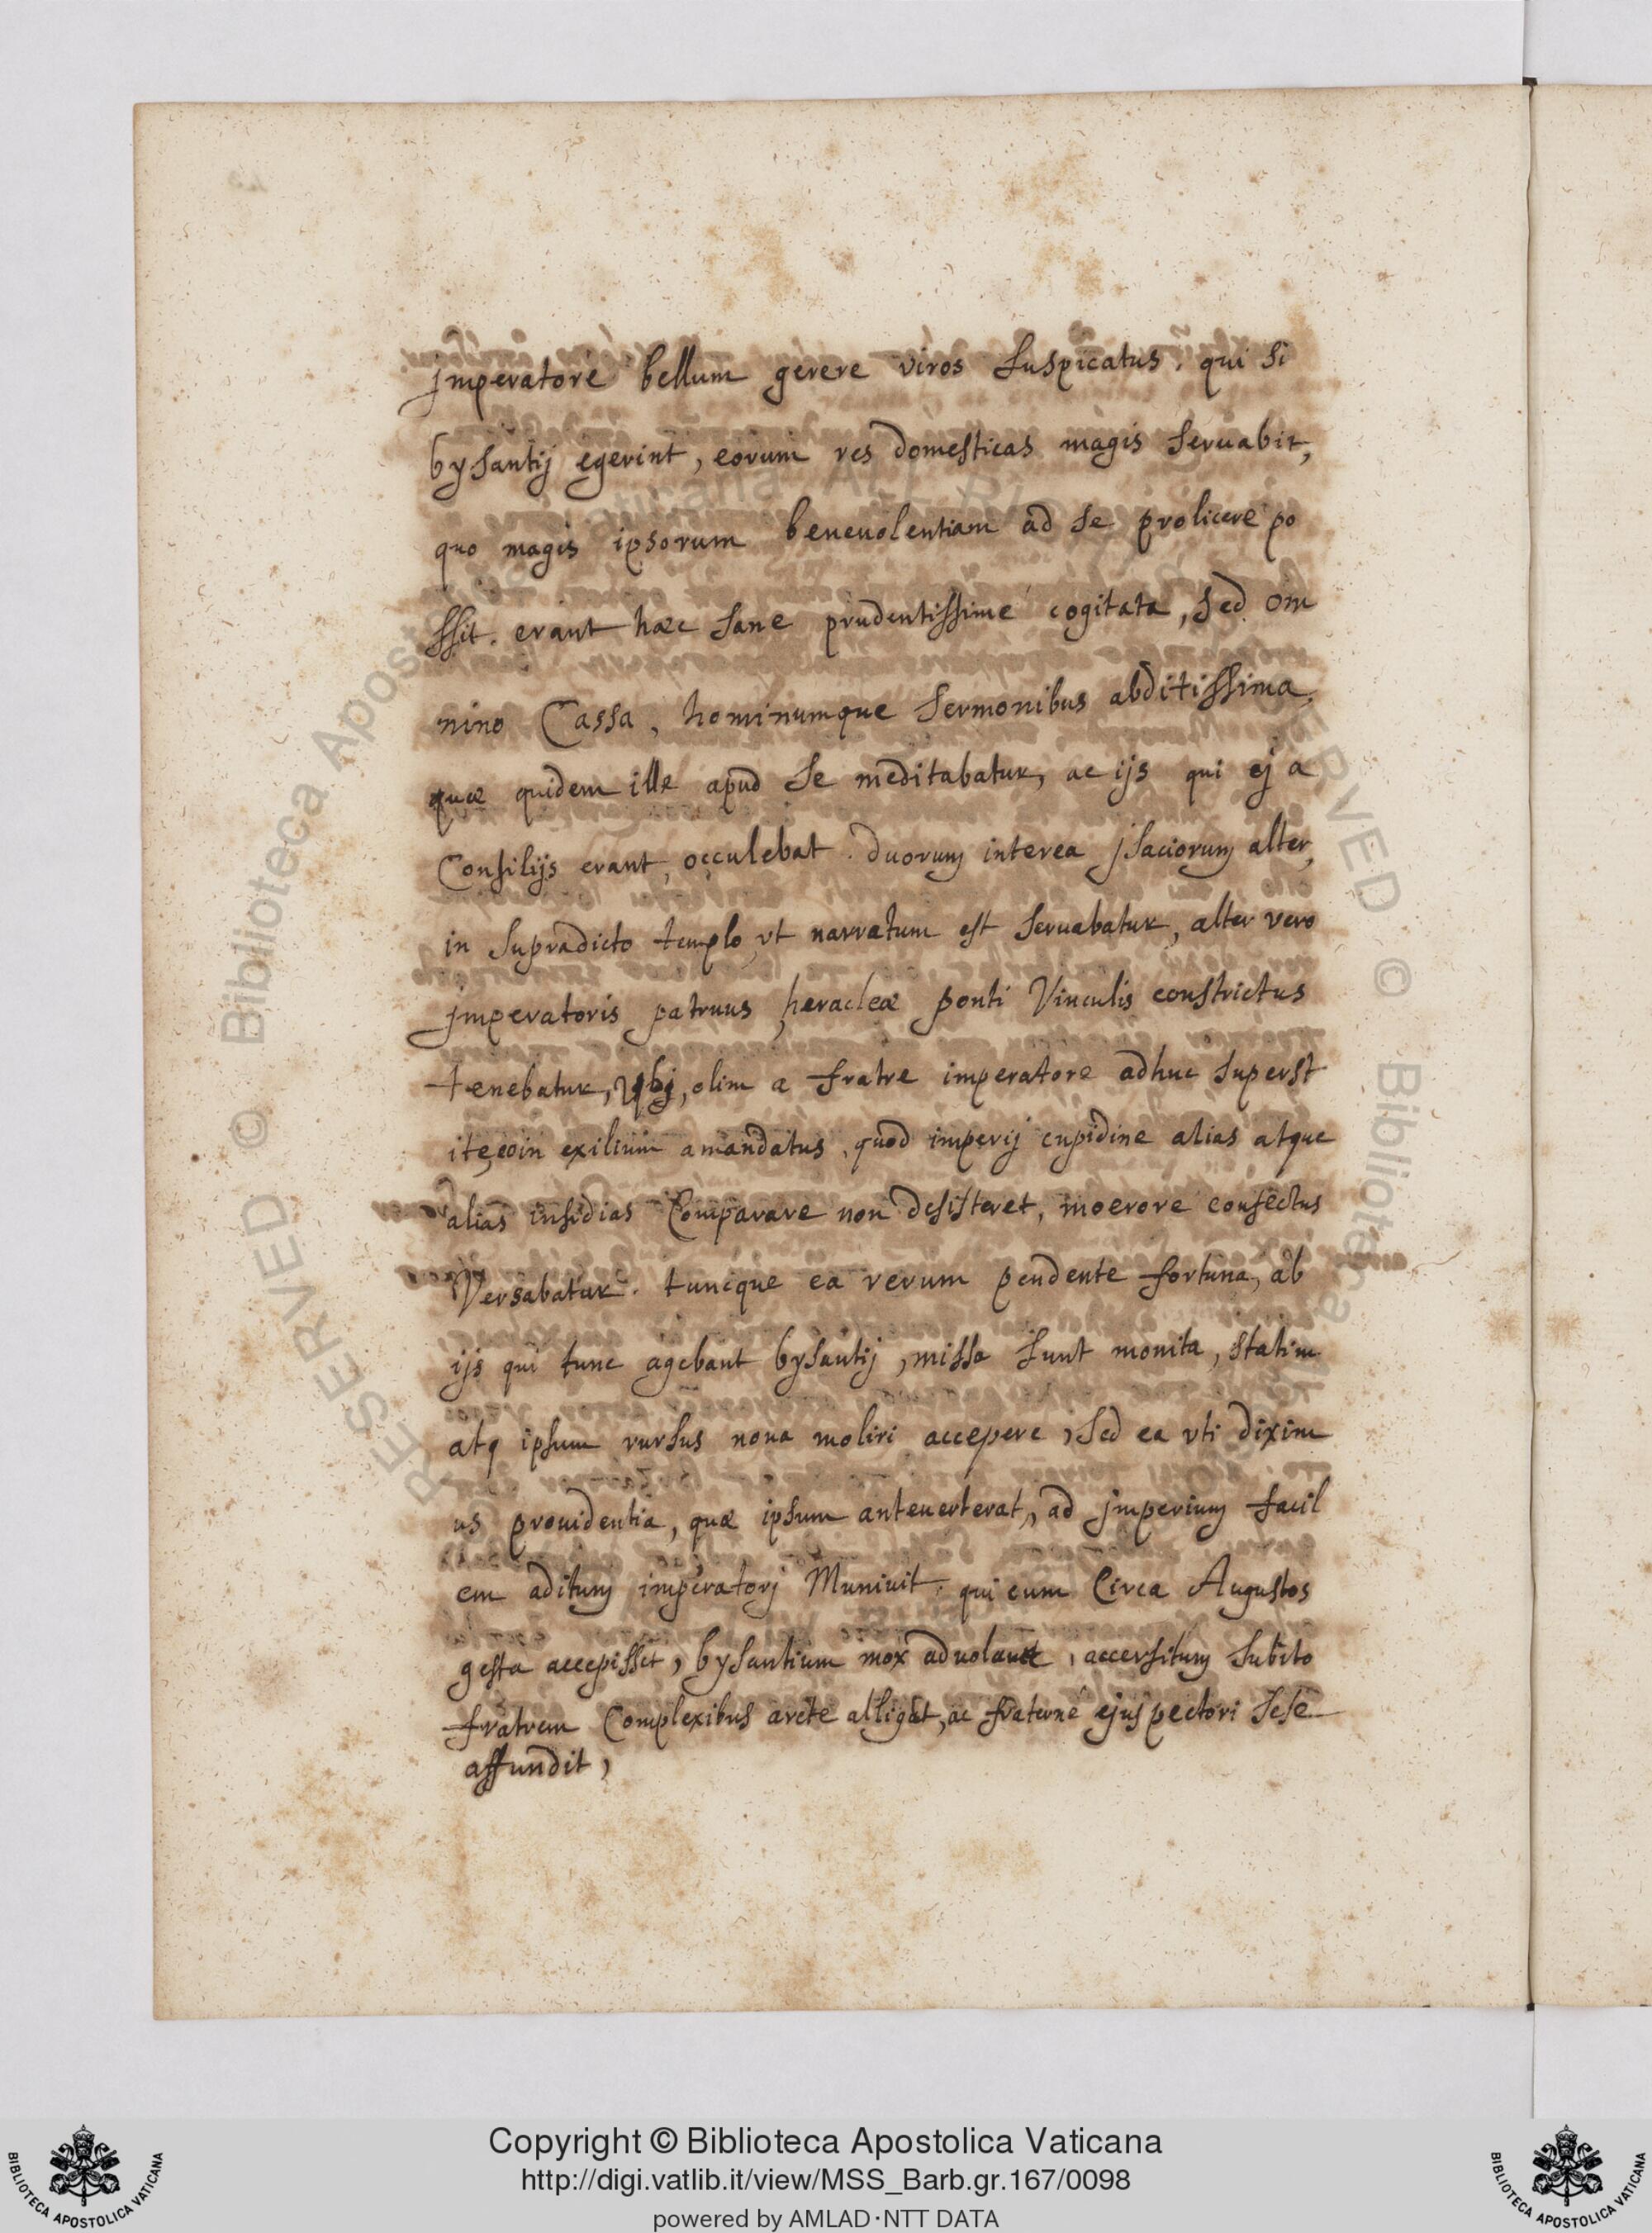 jmperatore bellum gerere viros suspicatus. qui si
bysantij egerint, eorum res domesticas magis seruabit,
quo magis ipsorum beneuolentiam ad se prolicere po
ssit. erant haec sane prudentissime cogitata, sed om
nino Cassa, hominumque sermonibus abditissima,
quae quidem ille apud se meditabatur, ac ijs qui ej a
Consilijs erant, occulebat. duorum interea jsaciorum alter,
in supradicto templo, vt narratum est seruabatur, alter vero
jmperatoris patruus heracleae ponti Vinculis constrictus
tenebatur, Vbj, olim a fratre imperatore adhuc superst
ite, eo in exilium amandatus, quod imperij cupidine alias atque
alias insidias Comparare non desisteret, moerore confectus
Versabatur. tuncque ea rerum pendente fortuna, ab
ijs qui tunc agebant bysantij, missa sunt monita, statim
atq ipsum rursus noua moliri accepere, sed ea vti dixim
us prouidentia, quae ipsum anteuerterat, ad jmperium facil
em aditum imperatorj Muniuit, qui cum Circa Augustos
gesta accepisset, bysantium mox aduolauit, accersitum subito
fratrem Complexibus arcte alligat, ac fraterne ejus pectori sese
affundit,
RESERVED © Biblioteca Apostolica Vaticana ALL RIGHTS RESERVED © Biblioteca
Copyright © Biblioteca Apostolica Vaticana
http://digi.vatlib.it/view/MSS_Barb.gr.167/0098
powered by AMLAD·NTT DATA
BIBLIOTECA APOSTOLICA VATICANA
BIBLIOTECA APOSTOLICA VATICANA